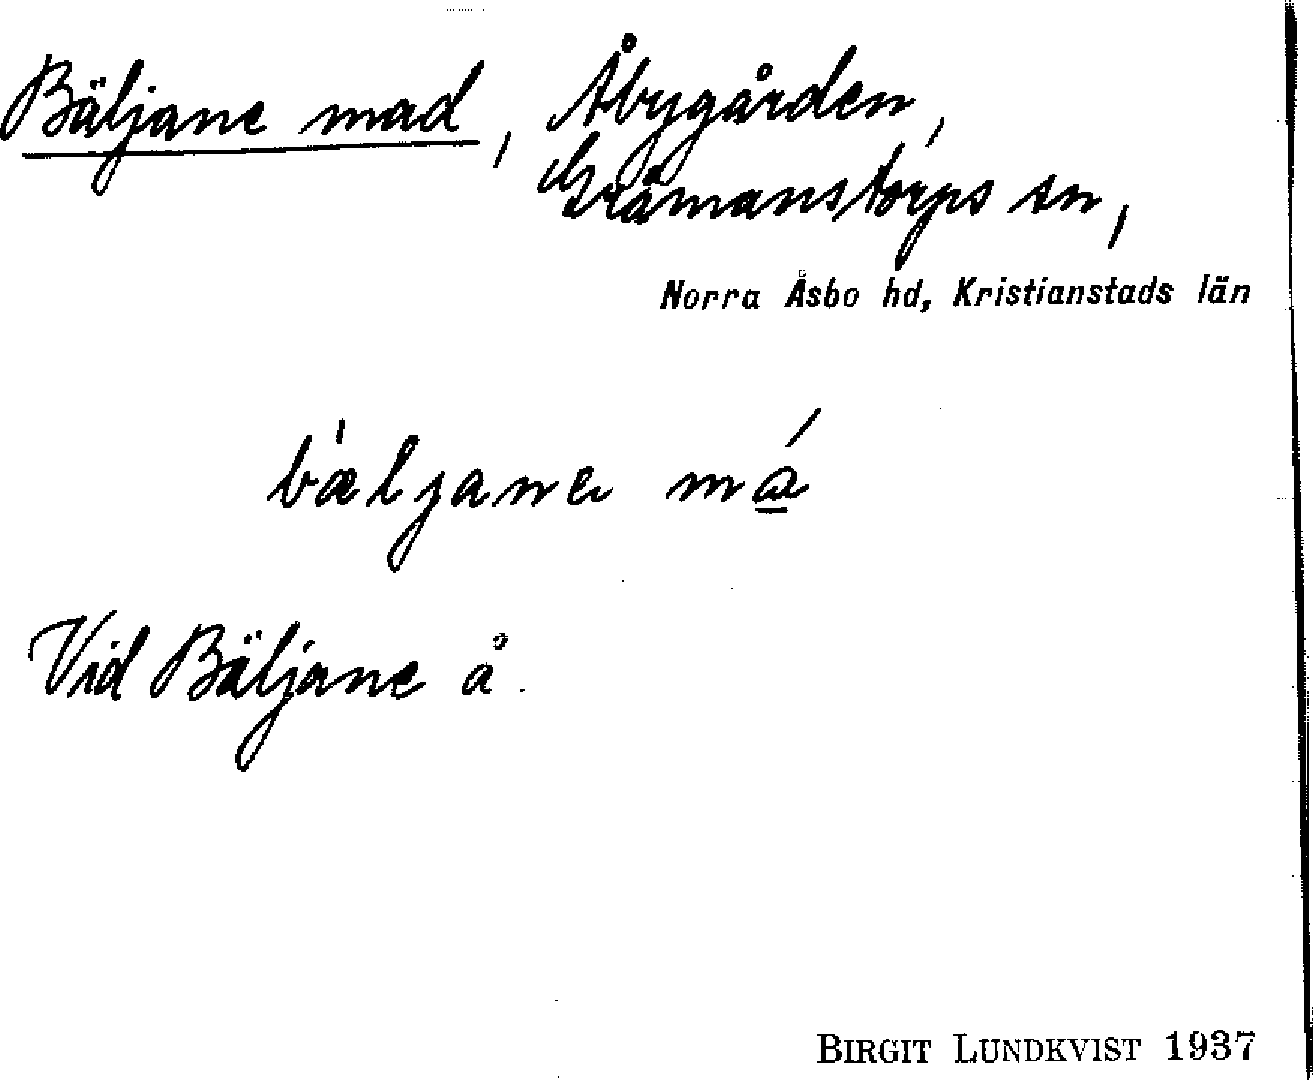 Bäljane mad, Åbygården,
Gråmanstorps sn,
Norra Åsbo hd, Kristianstads län
bæljane ma
Vid Bäljane å.
BIRGIT LUNDKVIST 1937